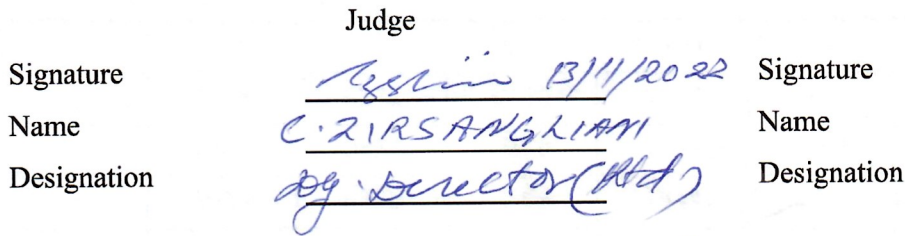 Judge
Signature 13/11/2022 Signature
Name C. ZIRSANGLIANI Name
Designation Dy. Director (Rtd) Designation